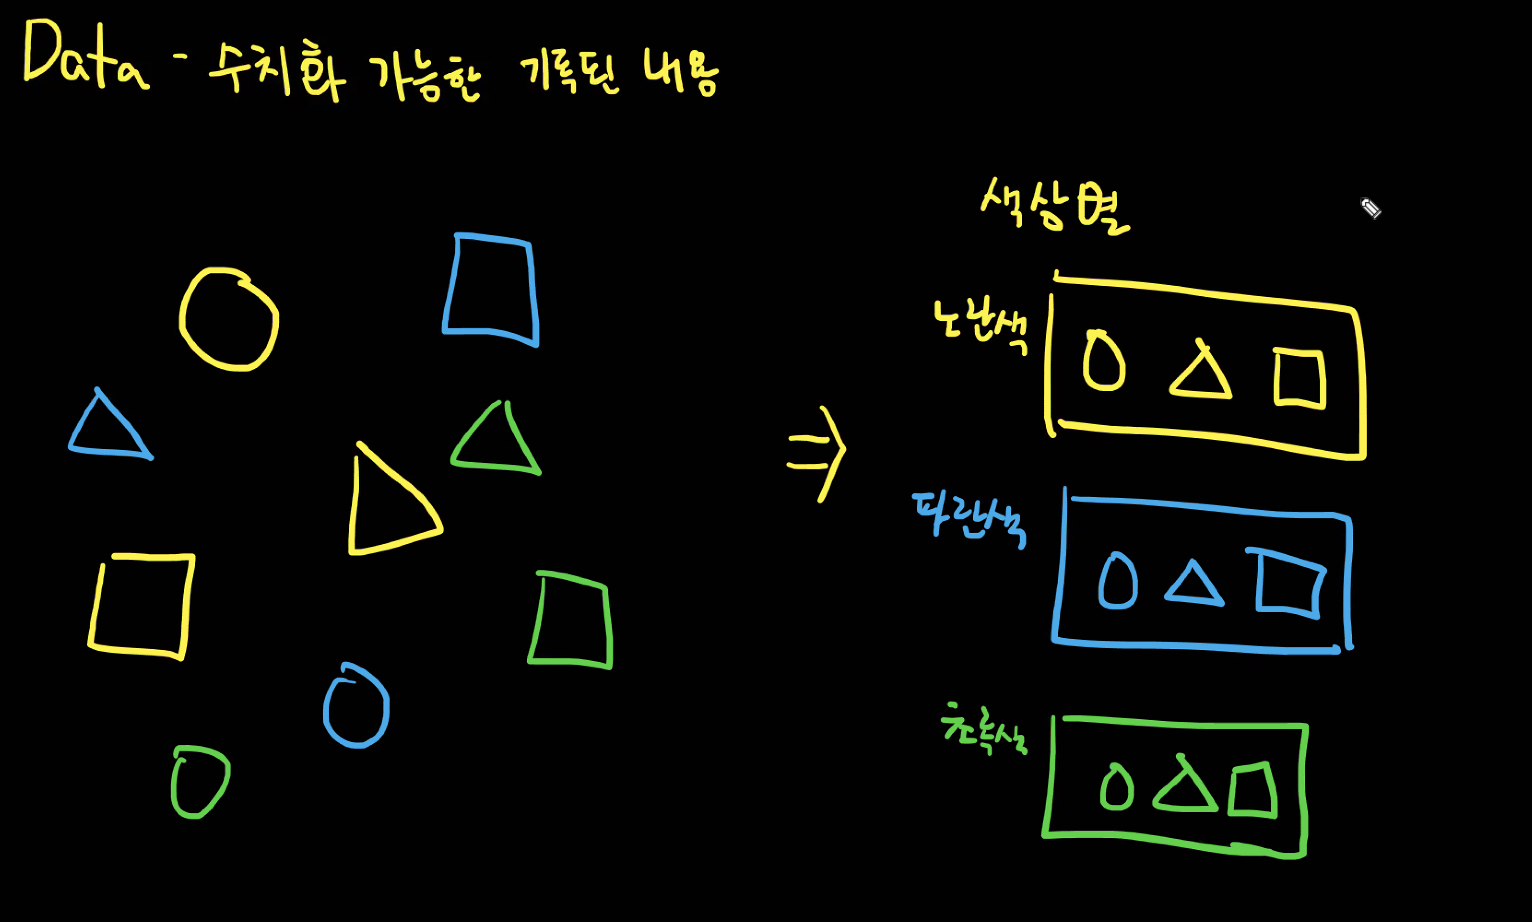 Data - 수치화 가능한 기록된 내용
색상별
노란색
파란색
초록색